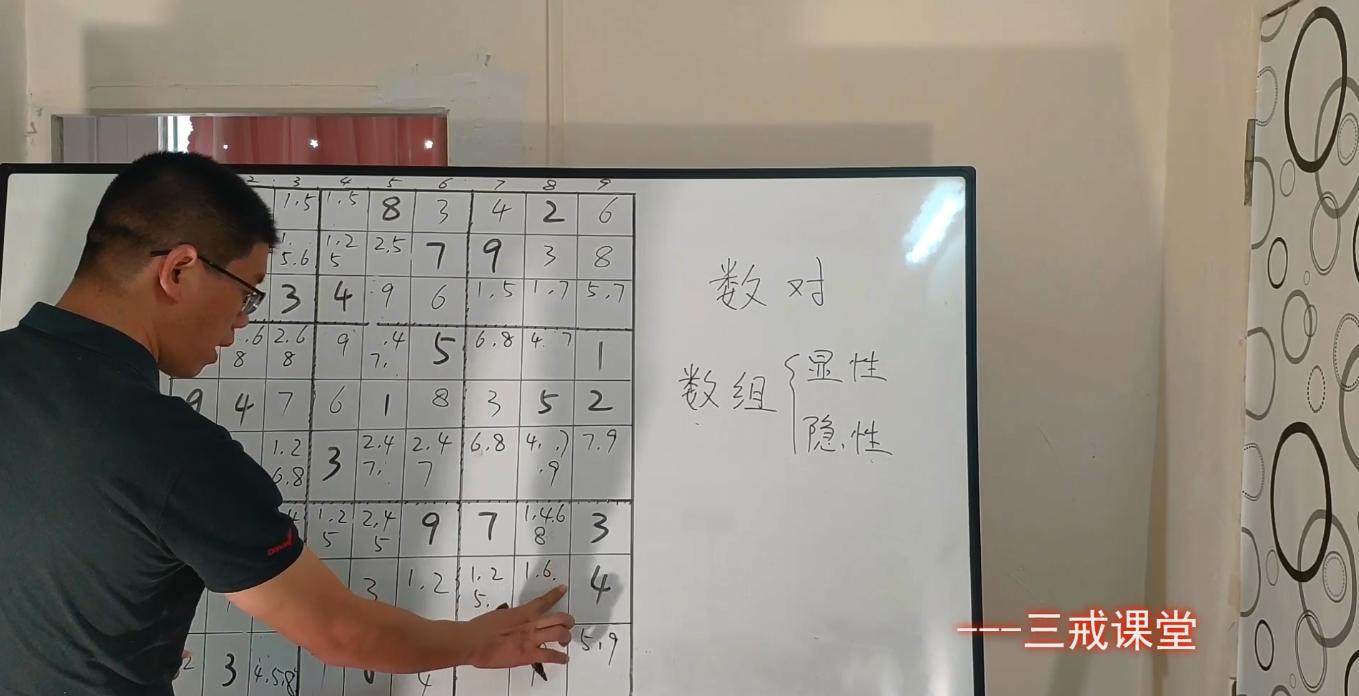 2 3 4 5 6 7 8 9
1.5 1.5 8 3 4 2 6
1. 5.6 1.2 5 2.5 7 9 3 8
3 4 9 6 1.5 1.7 5.7
.6 8 2.6 8 9 .4 7. 5 6.8 4. 7 1
9 4 7 6 1 8 3 5 2
1.2 6.8 3 2.4 7. 2.4 7 6.8 4. .7 .9 7.9
1.2 5 2.4 5 9 7 1.4.6 8 3
3 1.2 1.2 5. 1.6. 4
2 3 4.5.8 4 5.9
数对
数组
显性
隐性
---三戒课堂